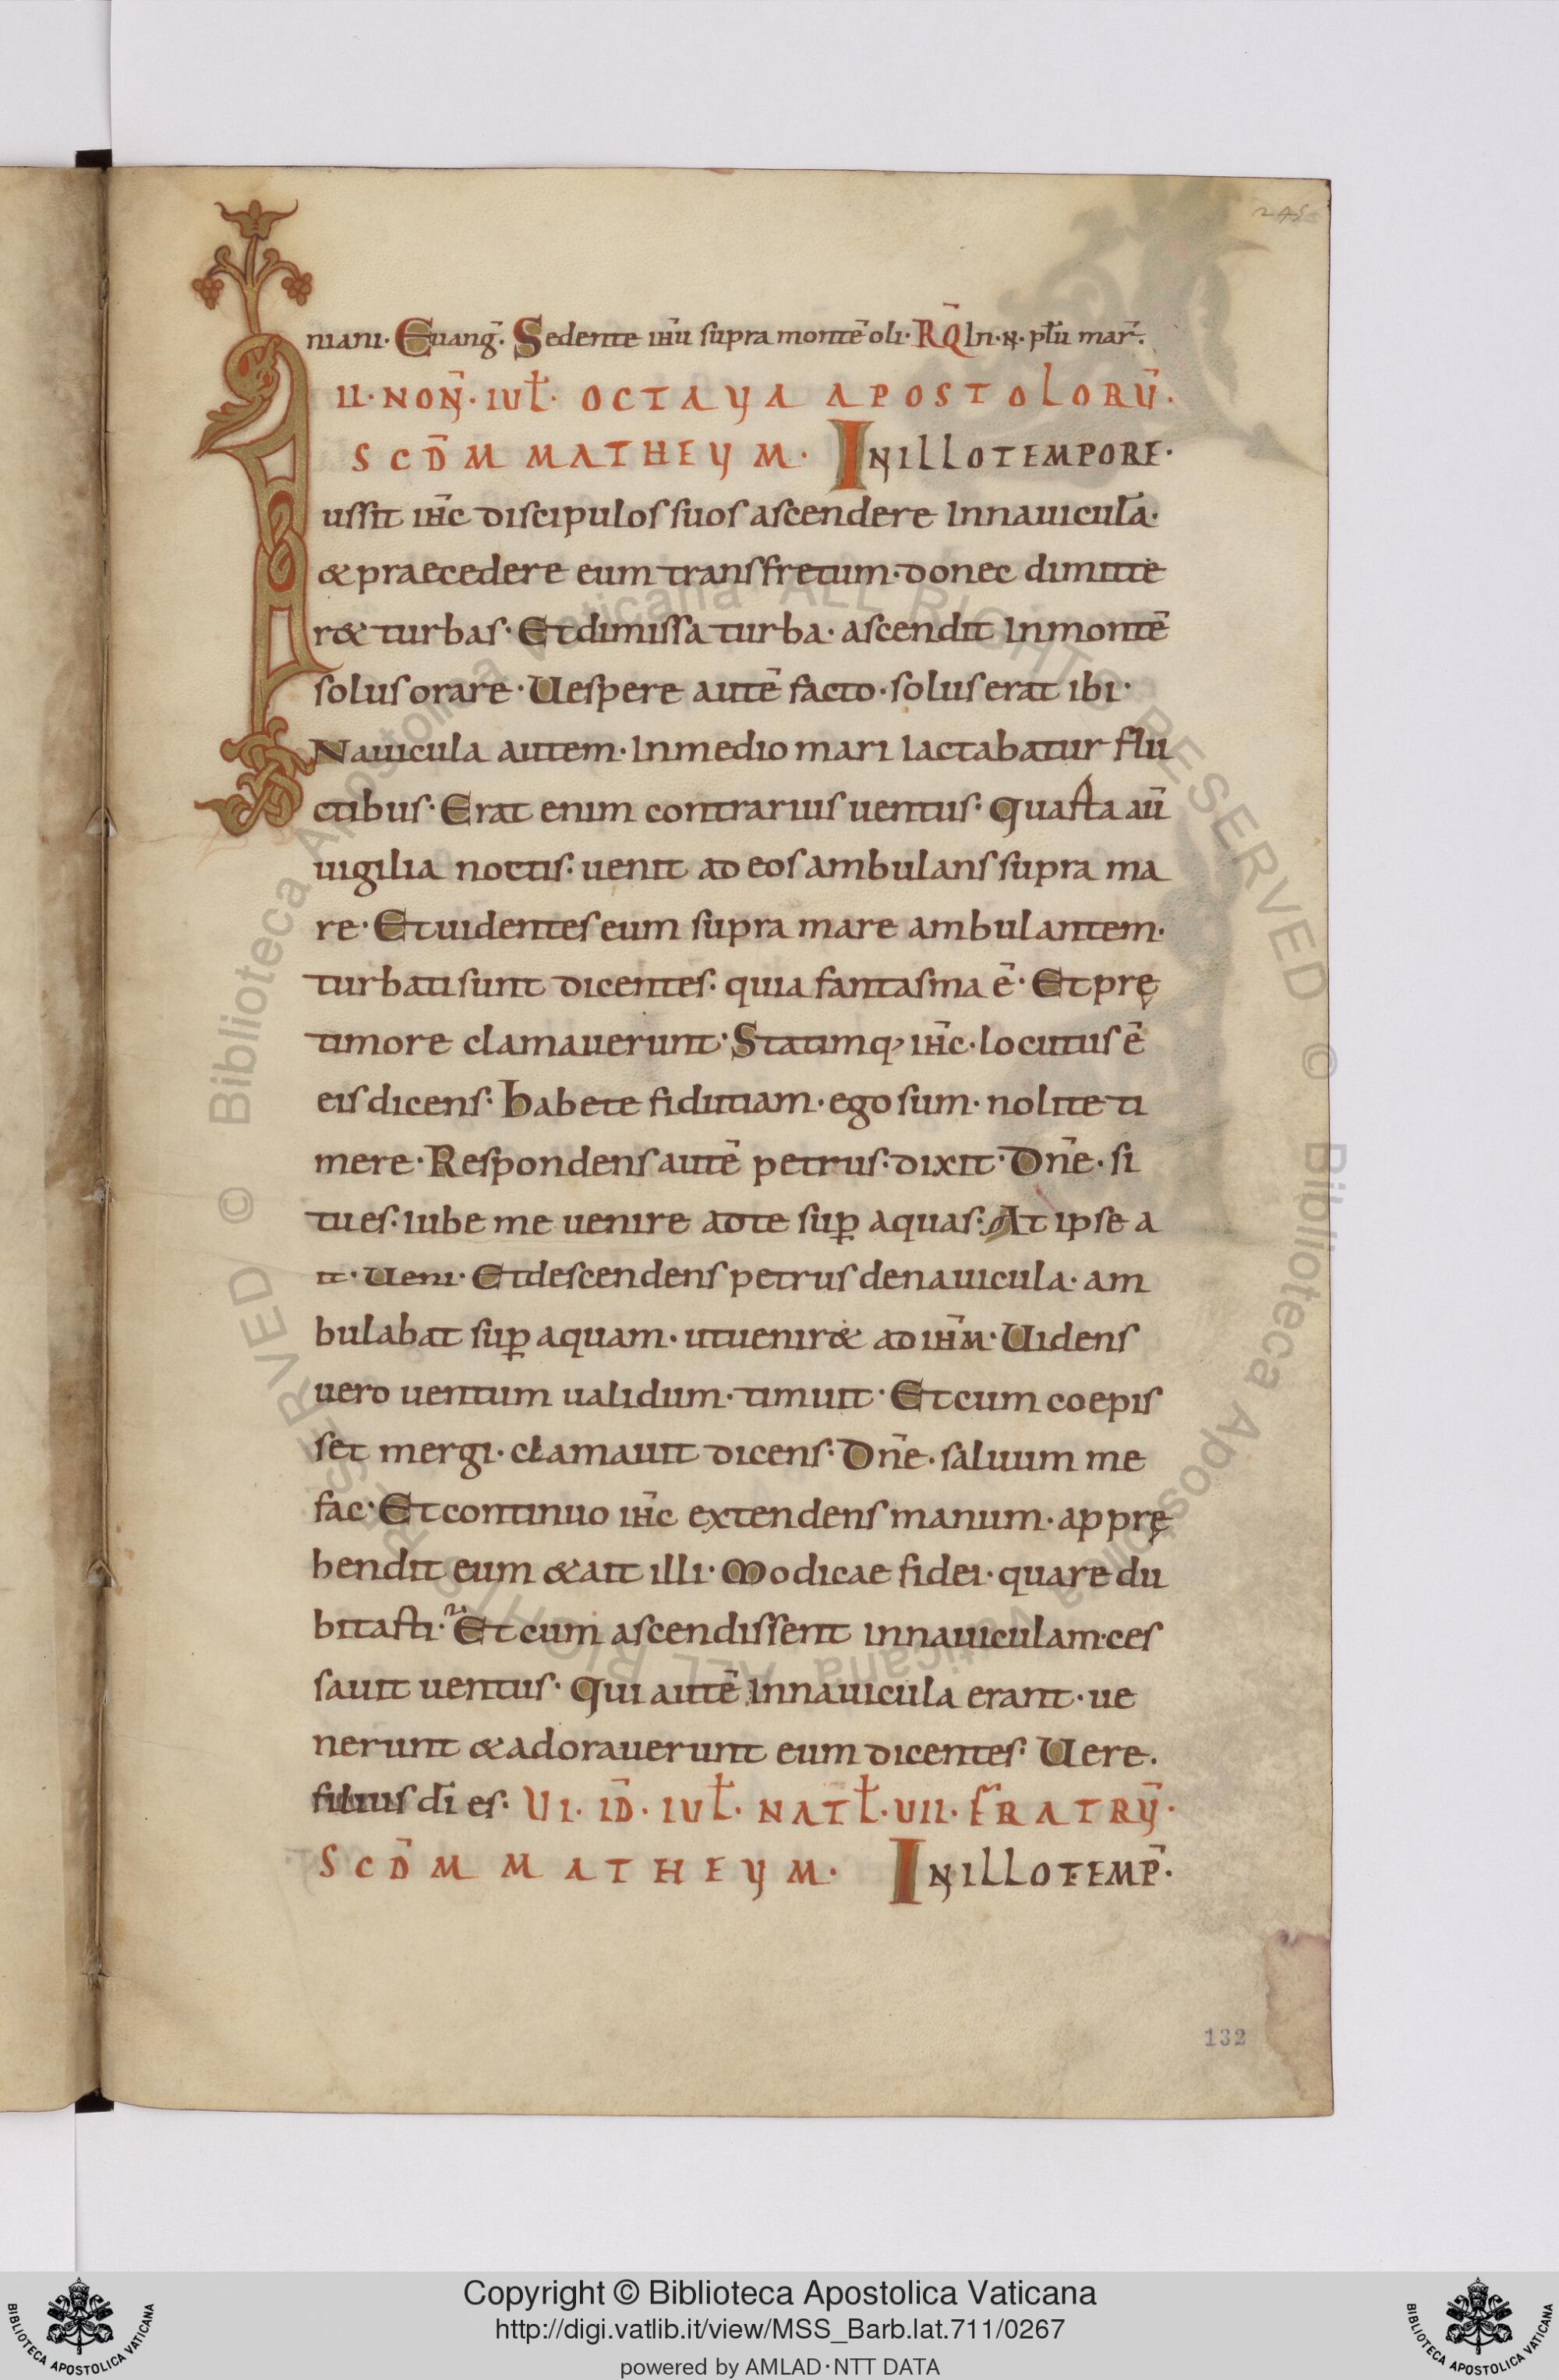 245
niani· Euang̅· Sedente ıħu̅ supra monte̅ oli· RQ̅ In·N·plu̅ mar̅.
II·NON̅·IUL̅· OCTAVA APOSTOLORU̅·
SCD̅M MATHEUM· IN ILLO TEMPORE·
Iussit ih̅c discipulos suos ascendere Innauicula̅·
& praecedere eum transfretum·donec dimitte
r& turbas· Et dimissa turba· ascendit Inmonte̅
solus orare· Uespere aute̅ facto· solus erat ibi·
Nauicula autem· Inmedio mari Iactabatur flu
ctibus· Erat enim contrarius uentus· Quarta au̅
uigilia noctis· uenit ad eos ambulans supra ma
re· Et uidentes eum supra mare ambulantem·
turbati sunt dicentes· quia fantasma e̅· Et prę
timore clamauerunt· Statimq; ih̅c· locutus e̅
eis dicens· habete fidutiam· ego sum· nolite ti
mere· Respondens aute̅ petrus· dixit· Dn̅e· si
tu es· Iube me uenire ad te sup̱ aquas· At ipse a
it· Ueni· Et descendens petrus denauicula· am
bulabat sup̱ aquam· ut uenir& ad ih̅m· Uidens
uero uentum ualidum· timuit· Et cum coepis
set mergi· clamauit dicens· Dn̅e· saluum me
fac· Et continuo ih̅c extendens manum· apprę
hendit eum & ait illi· Modicae fidei· quare du
bitasti· Et cum ascendissent innauiculam·ces
sauit uentus· Qui aute̅ Innauicula erant· ue
nerunt & adorauerunt eum dicentes· Uere·
filius di̅ es· VI· ID̅· IUL̅· NATL̅·VII· FRATRU̅·
SCD̅M MATHEUM· IN ILLO TEMP̅·
132
© Biblioteca Apostolica Vaticana ALL RIGHTS RESERVED © Biblioteca Apostolica Vaticana ALL RIGHTS RESERVED
Copyright © Biblioteca Apostolica Vaticana
http://digi.vatlib.it/view/MSS_Barb.lat.711/0267
powered by AMLAD·NTT DATA
BIBLIOTECA APOSTOLICA VATICANA
BIBLIOTECA APOSTOLICA VATICANA